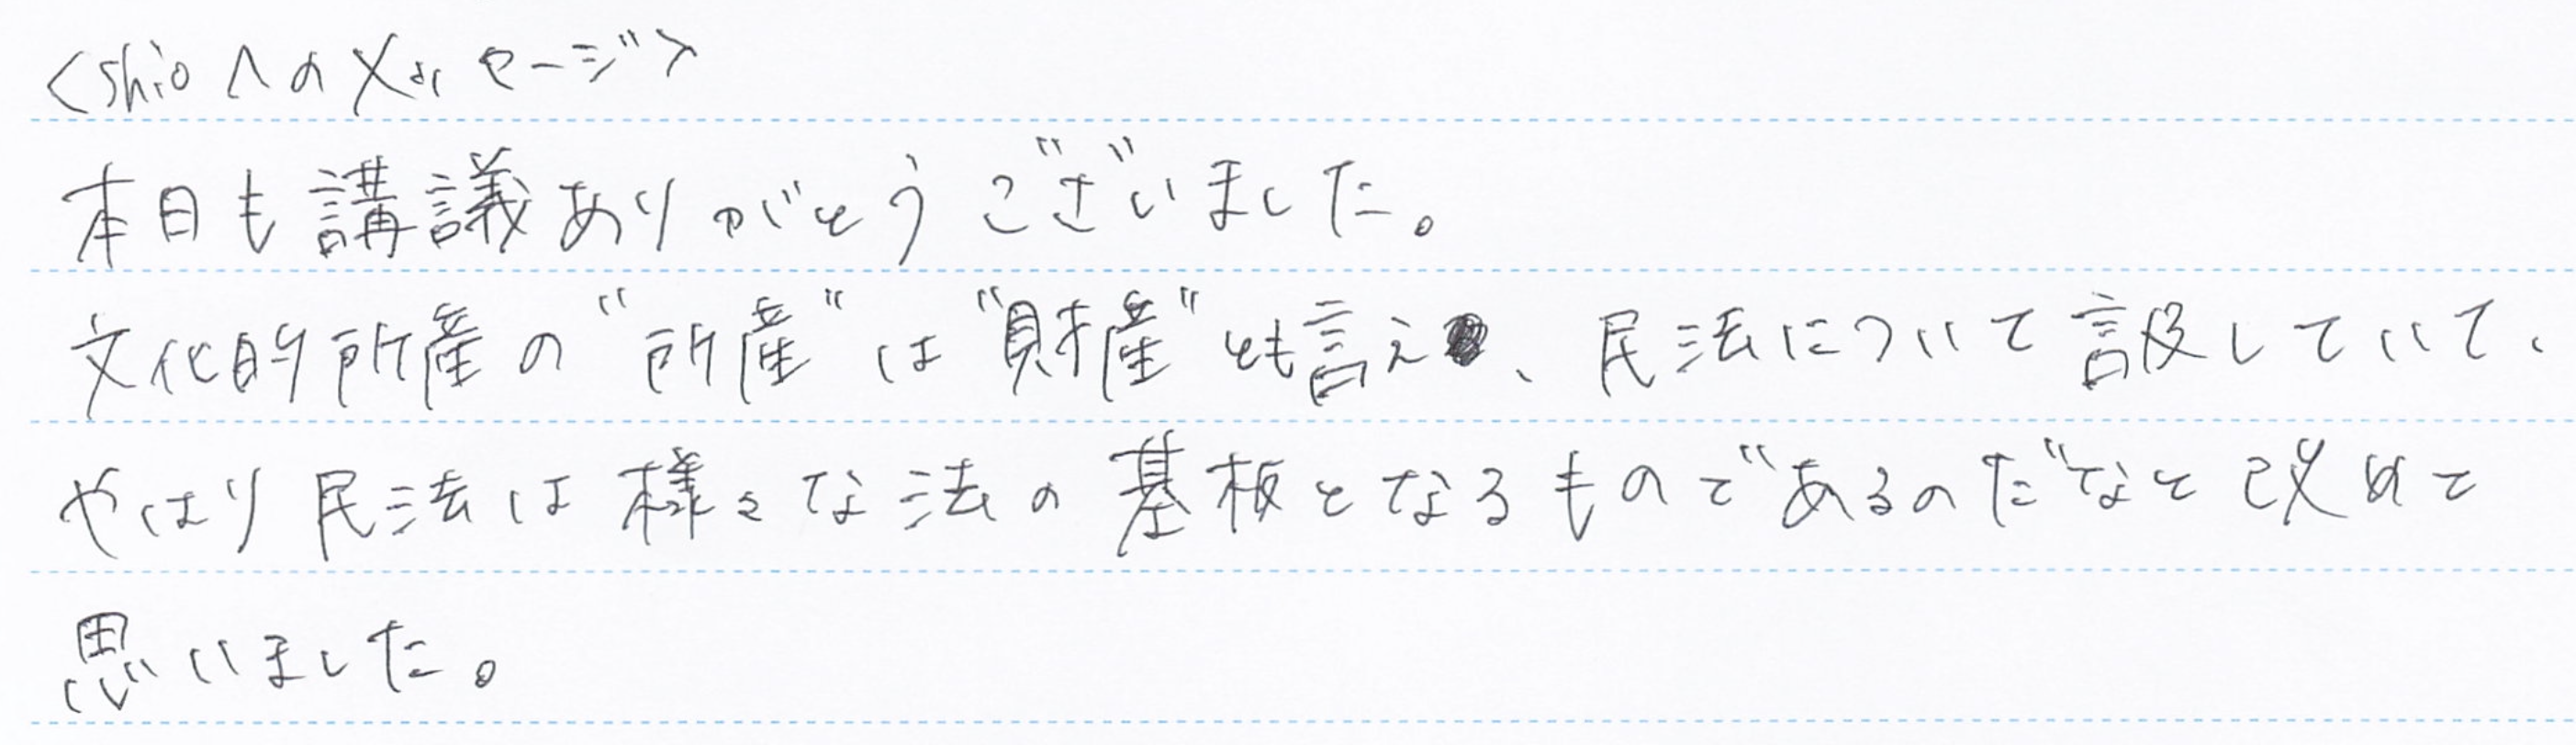 <shioへのメッセージ>
本日も講議ありがとうございました。
文化的所産の"所産"は"財産"とも言え、民法について言及していて、
やはり民法は様々な法の基板となるものであるのだなと改めて
思いました。